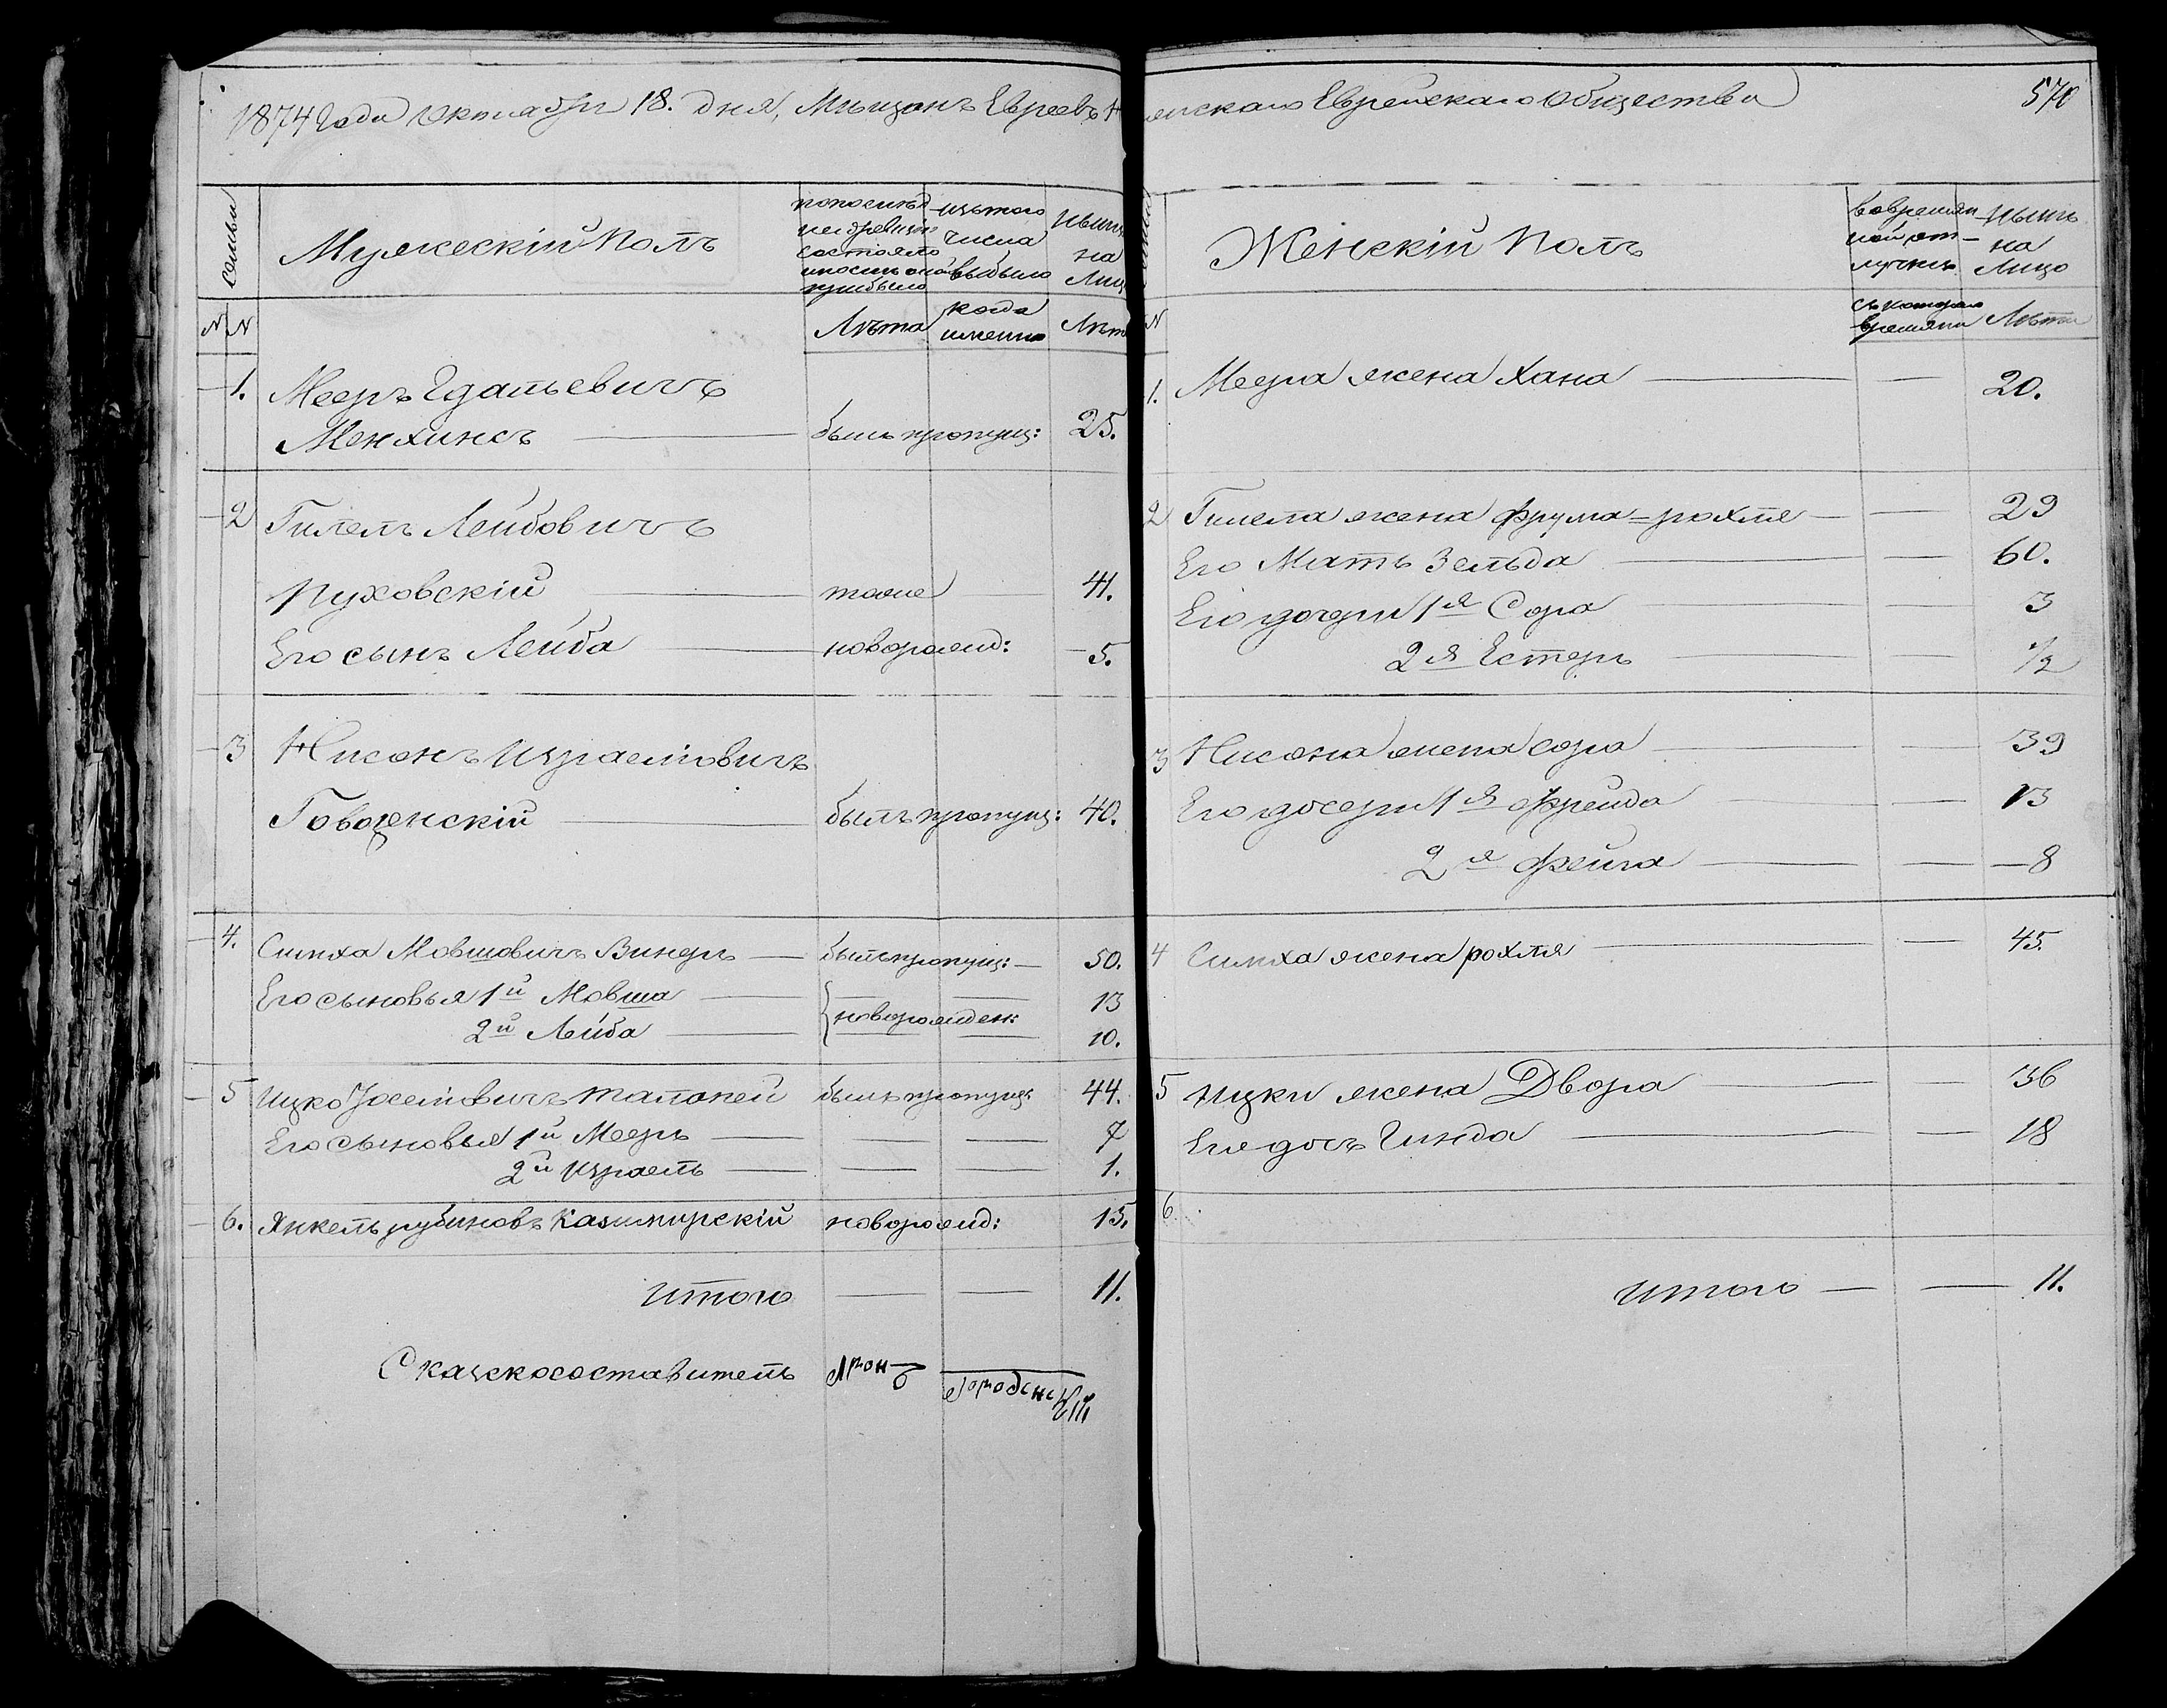 1874 Года Октября 18. дня, Мѣщанъ Евреевъ
скаго Еврейскаго Общества
570
семьи
Мужескій Полъ
по послѣд
ней ревизіи
состояло
и послѣ оной
прибыло
изъ того
числа
выбыло
нынѣ
на
Лиц
NN
Лѣта
когда
именно
Лѣт
1. Мееръ Гдальевичъ
Менхинсъ былъ пропущ: 25.
2 Гилель Лейбовичъ
Пуховскій тоже 41.
Его сынъ Лейба новорожд: 5.
3 Нисонъ Израелювичъ
былъ пропущ: 40.
4. Симха Мовшовичъ Винеръ былъ пропущ: 50.
Его сыновья 1й Мовша 13
новорожден:
2й Лейба 10.
5 Ицко Іоселіовичъ былъ пропущ: 44.
Его сыновья 1й Мееръ 7
2й Израель 1.
6. Янкель Рубиновъ Казимирскій новорожд: 15.
Итого 11.
Сказкосоставитель Аронъ Городенскій
Женскій Полъ
во времян
ной от-
лучкѣ
нынѣ
на
Лицо
N
съ котораго
времяни
Лѣта
1. Меера жена Хана 20.
2 Гилела жена Фрума=рохля 29
Его Мать Зельда 60.
Его дочери 1я Сора 3
2я Естеръ 1/2
3 Нисона жена сора 39
Его дочери 1я Фрейда 13
2я Фейга 8
4 Симха жена рохля 45.
5 Ицки жена Двора 36
Его дочь Гинда 18
6
Итого 11.